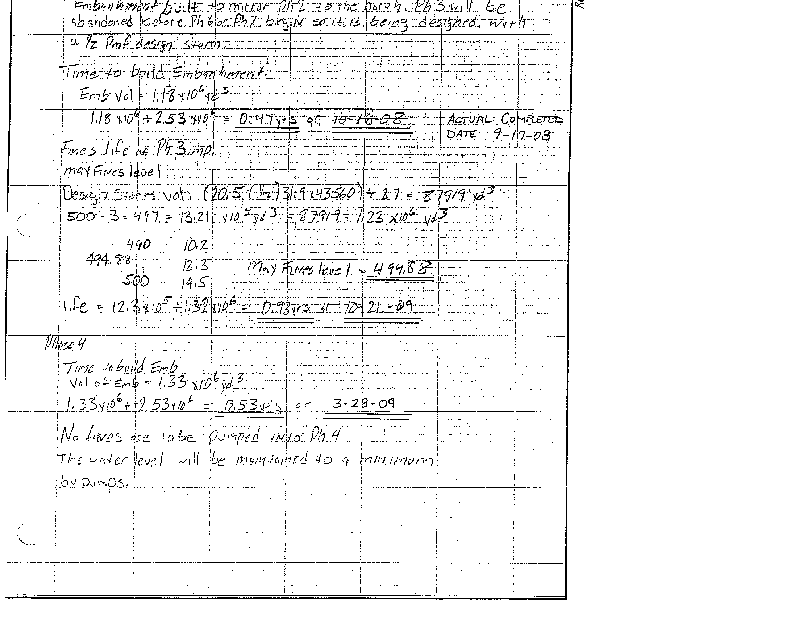 Embankment built to mirror Ph 2 to the north. Ph 3 will be
abandoned before Ph 6 or Ph 7 begin so it is being designed with
a 1/2 PMF design storm.
Time to build Embankment
Emb Vol = 1.18 x 10⁶ yd³
1.18 x 10⁶ ÷ 2.53 x 10⁶ = 0.47 yrs or 10-16-08
ACTUAL COMPLETED
DATE 9-17-08
Fines life of Ph. 3 imp.
max Fines level
Design Storm vol.
500 - 3 = 497 = 13.21 x 10⁵ yd³ - 87919 = 1.23 x 10⁶ yd³
490 10.2
494.88 12.3
500 14.5
Max Fines level = 494.88
Life = 12.3 x 10⁵ ÷ 1.32 x 10⁶ = 0.93 yrs or 10-21-09
Phase 4
Time to build Emb
Vol of Emb = 1.33 x 10⁶ yd³
1.33 x 10⁶ ÷ 2.53 x 10⁶ = 0.53 yrs or 3-28-09
No fines are to be pumped into Ph. 4
The water level will be maintained to a minimum
by pumps.